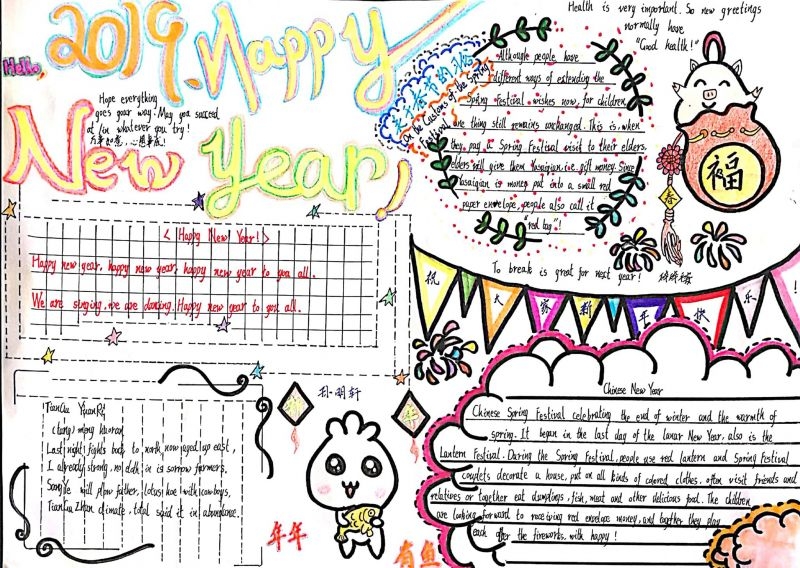 Hello,
2019. Happy
New Year!
Hope everything
goes your way. May you succeed
at / in whatever you try!
万事如意，心想事成！
Health is very important. So new greetings
normally have
"Good health!"
On the Customs of the Spring
Festival
Although people have
different ways of extending the
Spring Festival wishes now, for children,
are thing still remains unchanged. This is, when
they pay a Spring Festival visit to their elders,
elders will give them Yasuiqian, i.e. gift money. Since
Yasuiqian is money put into a small red
paper envelope, people also call it
"red bag"!
福
春
To break is great for next year!
祝大家新年快乐！
< Happy New Year! >
Happy new year, happy new year, happy new year to you all.
We are singing, we are dancing. Happy new year to you all.
TianJia YuanRi
(tang) meng haoran
Last night fights back to north, now eyed up east,
I already strong, no in is sorrow farmers.
will plow father, lotus hoe with cowboys,
TianJia Zhan climate, total said it in abundance.
年年
有鱼
Chinese New Year
Chinese Spring Festival celebrating the end of winter and the warmth of
spring. It began in the last day of the lunar New Year, also is the
Lantern Festival. During the Spring Festival, people use red lantern and Spring Festival
couplets decorate a house, put on all kinds of colored clothes, often visit friends and
relatives or together eat dumplings, fish, meat and other delicious food. The children
are looking forward to receiving red envelope money, and together they play
each other the fireworks, with happy!